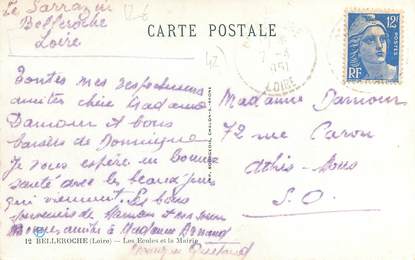 Le Sarrazin
Belleroche
Loire
CARTE POSTALE
12F
POSTES
RF
LOIRE
Toutes mes respectueuses
amitiés chère Madame
Damour et bons
baisers de Dominique
Je vous espère en bonne
santé avec les beaux jours
qui viennent. Les bons
souvenirs de Maman et
Bonnes amitiés à Madame
Madame Damour
72 rue Caron
Athis-Mons
S.O.
12 BELLEROCHE (Loire) — Les Ecoles et la Mairie